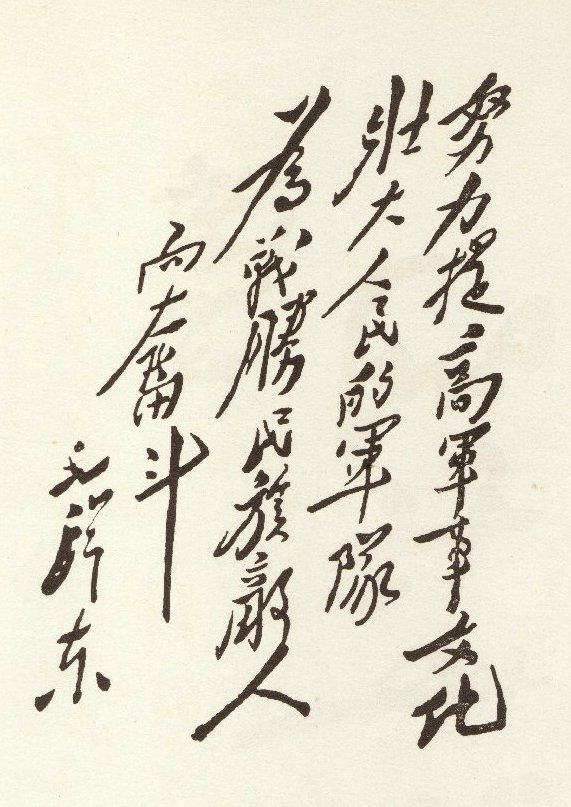 努力提高軍事文化
壯大人民的軍隊
為戰勝民族敵人
而大奮斗
毛澤东